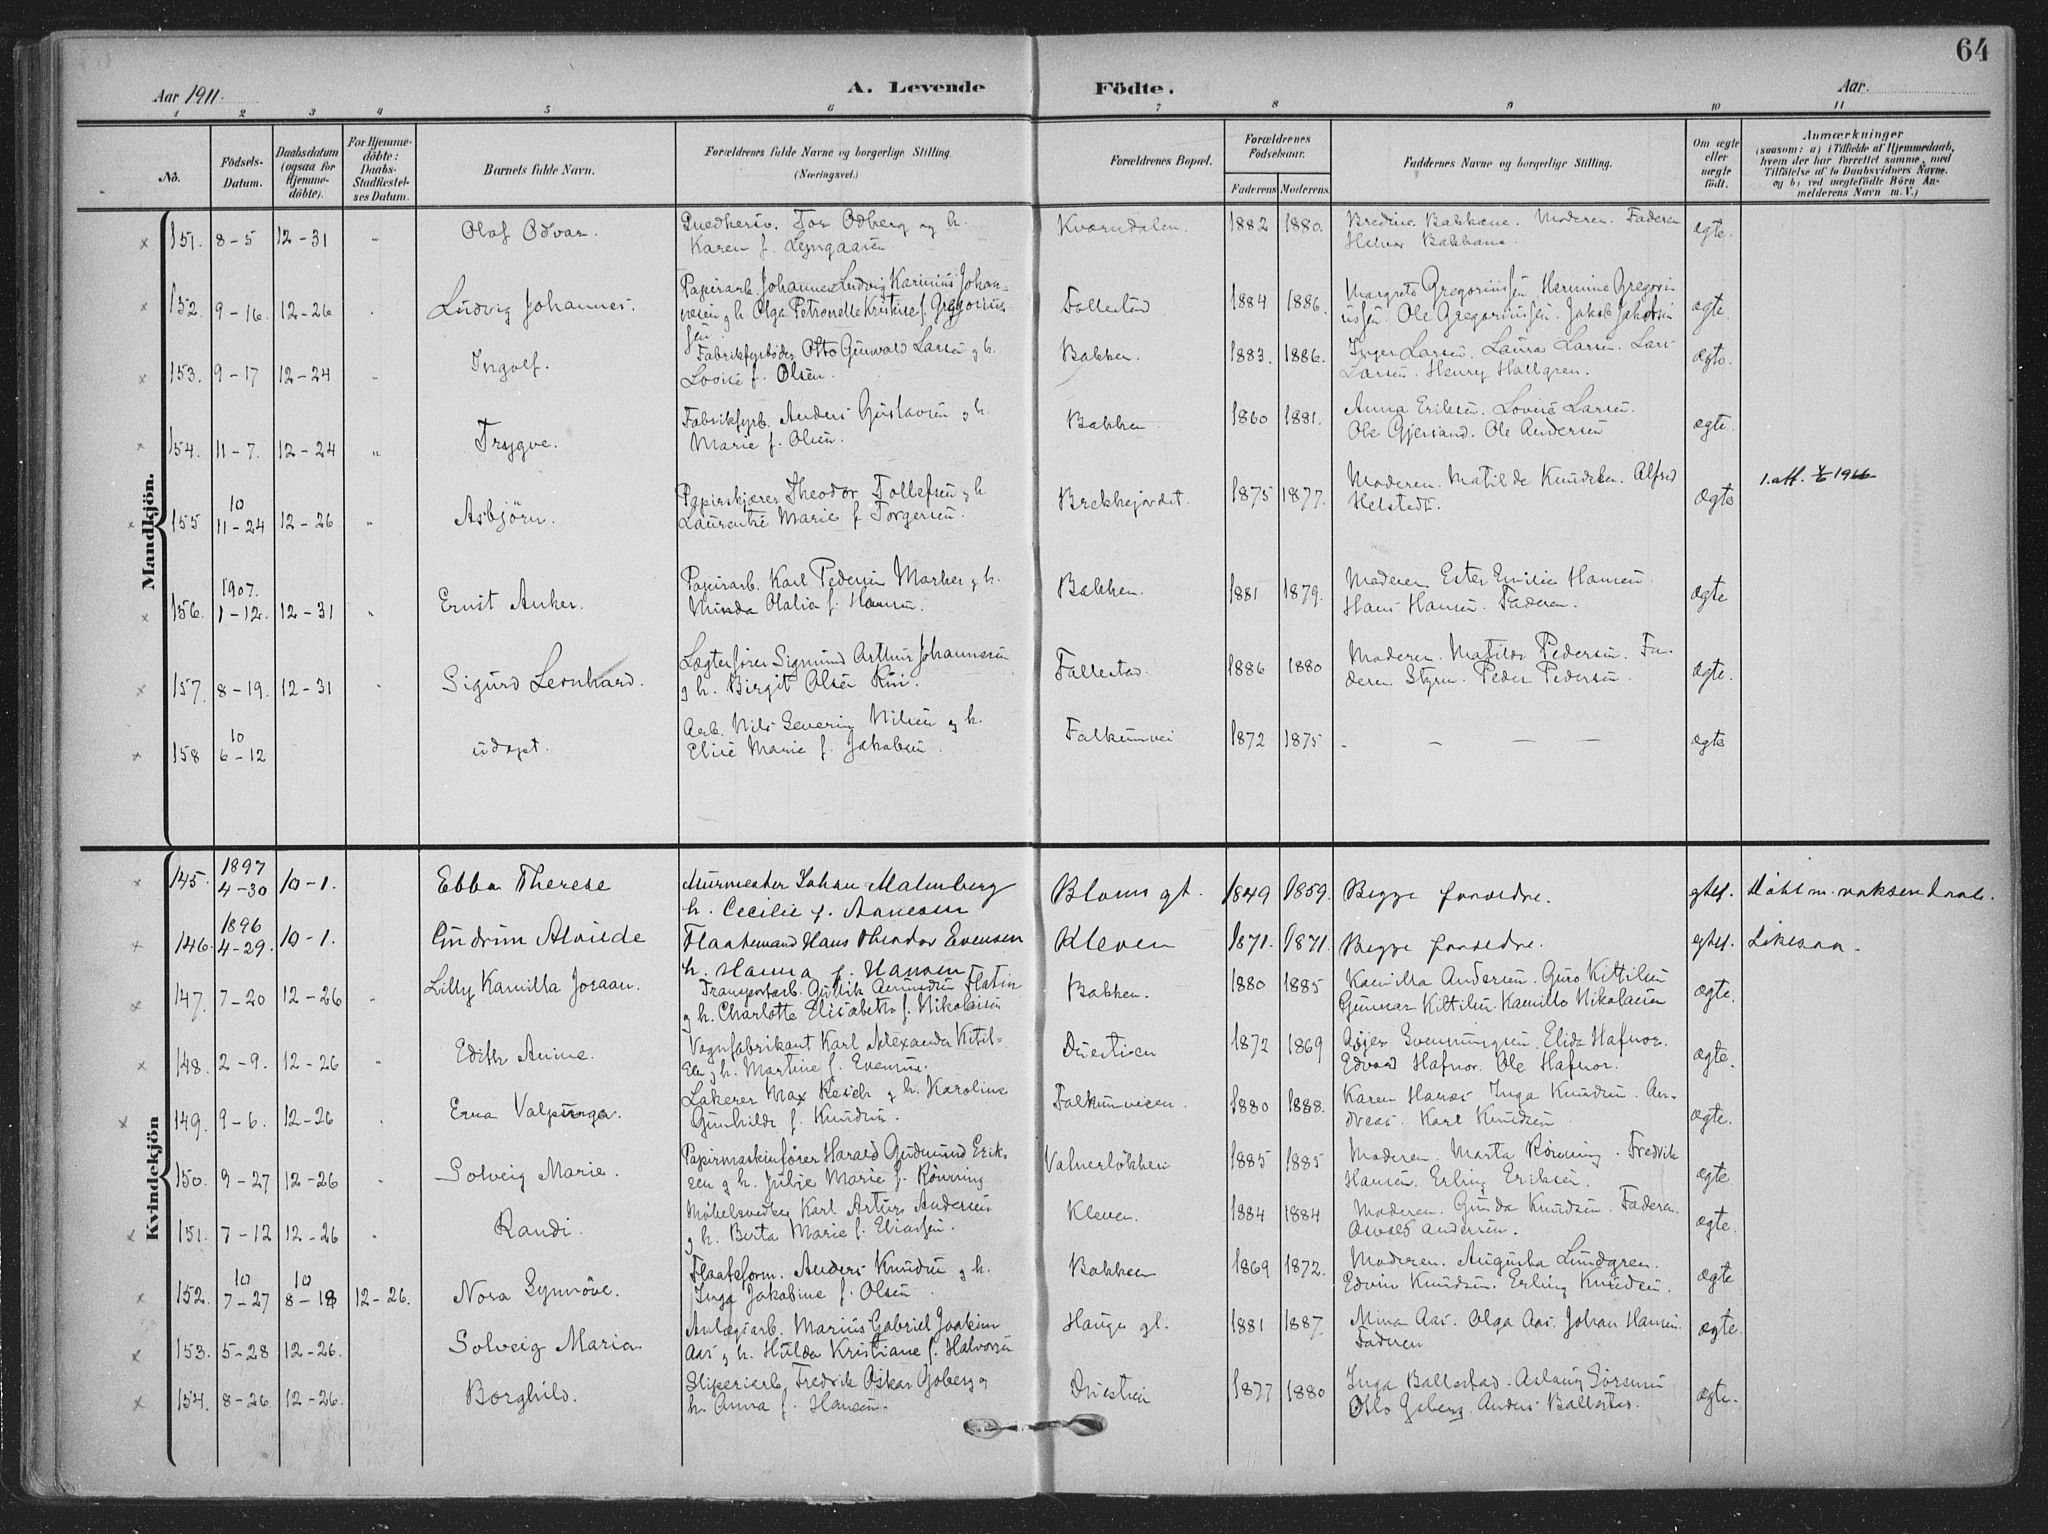 64
Aar 1911. A. Levende Födte. Aar.
1 2 3 4 5 6 7 8 9 10 11
No.
Födsels-Datum.
Daabsdatum (ogsaa for Hjemme-döbte).
For Hjemme-döbte: Daabs-Stadfæstel-ses Datum.
Barnets fulde Navn.
Forældrenes fulde Navne og borgerlige Stilling (Næringsvei.)
Forældrenes Bopæl.
Forældrenes Födselsaar.
Faderens Moderens
Faddernes Navne og borgerlige Stilling.
Om ægte eller uægte födt.
Anmærkninger
(saasom: a) i Tilfælde af Hjemmedaab,
hvem der har forrettet samme, med
Tilföielse af to Daabsvidners Navne.
og b) ved uægtefödte Börn An-
melderens Navn m. V.)
Mandkjön.
151. 8-5 12-31 Olaf Odvar. Snedkersv. Tor Odberg og h. Kværndalen. 1882 1880. Bredine Bakkane. Moderen. Faderen ægte.
Karen f. Lyngaasen Halvor Bakkane.
152. 9-16. 12-26 Ludvig Johannes. Papirarb. Johannes Ludvig Karinius Johan- Follestad 1884 1886. Margrete Gregoriussen Hermine Gregori- ægte.
nesen g h. Olga Petronelle Kristine f. Gregorius- ussen. Ole Gregoriussen. Jakob Jakobsen
sen
153. 9-17 12-24 Ingolf. Fabrikfyrböder Otto Gunvald Larsen g h. Bakken. 1883. 1886. Inger Larsen. Laura Larsen. Lars ægte.
Lovise f. Olsen. Larsen. Henry Hallgren.
154. 11-7. 12-24 Trygve. Fabrikfyrb. Anders Gustavsen g h. Bakken. 1860 1881. Anna Eriksen. Lovise Larsen. ægte.
Marie f. Olsen. Ole Gjersand. Ole Andersen
155 10 11-24 12-26 Asbjörn. Papirskjærer Theodor Tollefsen g h. Brekkejordet. 1875 1877. Moderen. Matilde Knudsen. Alfred ægte 1. att. 1966
Laurentse Marie f. Torgersen. Helstedt.
156. 1907. 1-12. 12-31 Ernst Anker. Papirarb. Karl Pedersen Marker g h. Bakken. 1881 1879. Moderen Ester Emilie Hansen. ægte
Minda Olalia f. Hansen. Hans Hansen. Faderen.
157. 8-19. 12-31 Sigurd Leonhard. Lægterfører Sigmund Arthur Johannesen Follestad. 1886 1880 Moderen. Matilde Pedersen. Fa- ægte.
g h. Birgit Olsen Kui. deren Styrm. Peder Pedersen.
158 10 6-12 udöpt. Arb. Nils Severin Nilsen g h. Falkumvei 1872 1875 - - - - ægte
Elise Marie f. Jakobsen.
Kvindekjön
145. 1897 4-30 10-1. Ebba Therese Murmester Johan Malmberg Bloms gt. 1849 1859. Begge forældre. gtef. Döbt m. voksendaab.
h. Cecilie f. Arnesen
146. 1896 4-29. 10-1. Gudrun Alvilde Flaatemand Hans Theodor Evensen Kleven 1871. 1871. Begge forældre. gtef. Likesaa.
h. Hanna f. Hansen
147. 7-20 12-26 Lilly Kamilla Joraan. Transportarb. Gullik Amundsen Flatin Bakken. 1880 1885 Kamilla Andersen. Guro Kittilsen ægte.
g h. Charlotte Elisabeth f. Nikolaisen Gunnar Kittilsen. Kamillo Nikolaisen
148. 2-9. 12-26 Edith Anine. Vognfabrikant Karl Alexander Kitil- Duestien 1872 1869 Asjer Svenningsen. Elida Hafnor. ægte.
sen g h. Martine f. Evensen. Edvard Hafnor. Ole Hafnor.
149. 9-6. 12-26 Erna Valpurga. Lakerer Max Resch g h. Karoline Falkumveien. 1880 1888. Karen Hanas Inga Knudsen. An- ægte.
Gunhilde f. Knudsen. dreas. Karl Knudsen
150. 9-27 12-26 Solveig Marie. Papirmaskinfører Harald Gudmund Erik- Valnerlökken 1885 1885 Moderen. Marta Rönning. Fredrik ægte
sen g h. Julie Marie f. Rönning Hansen. Erling Eriksen.
151. 7-12 12-26 Randi. Möbelsnedker Karl Arturs Andersen Kleven. 1884 1884 Moderen. Gunda Knudsen. Faderen. ægte.
g h. Berta Marie f. Eliassen. Osvald Andersen.
152. 10 7-27 10 8-18 12-26. Nora Synnöve. Flaateform. Anders Knudsen g h. Bakken 1869 1872. Moderen. Augusta Lundgren. ægte
Inga Jakobine f. Olsen. Edvin Knudsen. Erling Knudsen.
153. 5-28 12-26. Solveig Maria. Anlægsarb. Marius Gabriel Joakim Hauge gt. 1881 1887. Mina Aas. Olga Aas. Johan Hansen. ægte.
Aas g h. Hulda Kristiane f. Halvorsen Faderen
154. 8-26. 12-26. Borghild. Sliperiarb. Fredrik Oskar Gjöberg g Duestien 1877 1880 Inga Ballestad. Aslaug Sörensen ægte.
h. Anna f. Hansen. Otto Geberg. Anders Ballestad.